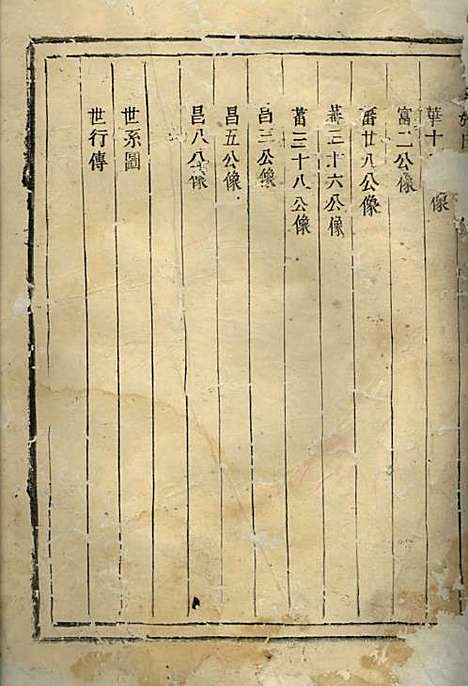 華十 像
富二公像
畨廿八公像
華三十六公像
萬三十八公像
昌三公像
昌五公像
昌八公像
世系圖
世行傳